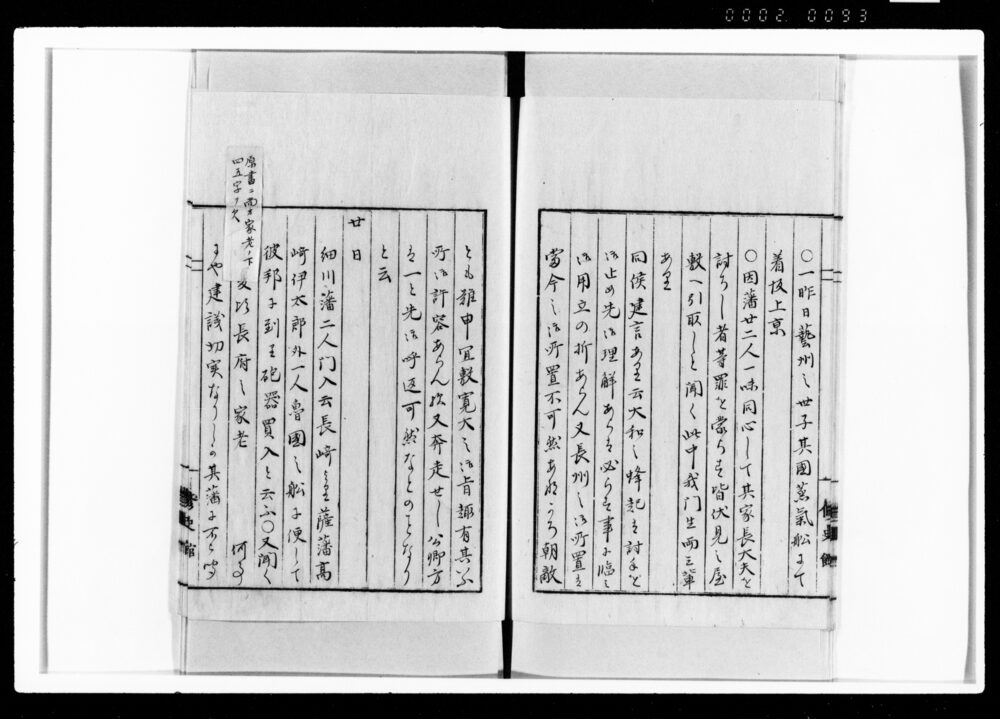 0002 0093
〇一昨日藝州之世子其國蒸氣舩にて
着坂上京
〇因藩廿二人一味同心して其家長大夫を
討ちし者等罪を蒙らす皆伏見之屋
敷へ引取しと聞く此中我门生両三輩
あり
同侯建言あり云大和之蜂起は討手を
御止め先御理解あらは必らす事に臨み
御用立の折あらん又長州之御所置は
當今之御所置不可然あるつから朝敵
とも雖申宜敷寛大之御旨趣有其以
所御許容あらん欤又奔走せし公卿方
は一と先御呼返可然なとのことなり
と云
廿日
細川藩二人门入云長崎より薩藩高
崎伊太郎外一人魯國之舩に便して
彼邦に到り砲器買入と云ふ〇又聞く
及以長府之家老 何
にや建議切実なりしか其藩に不
原書ニ而家老ノ下
四五字ヲ欠
史館